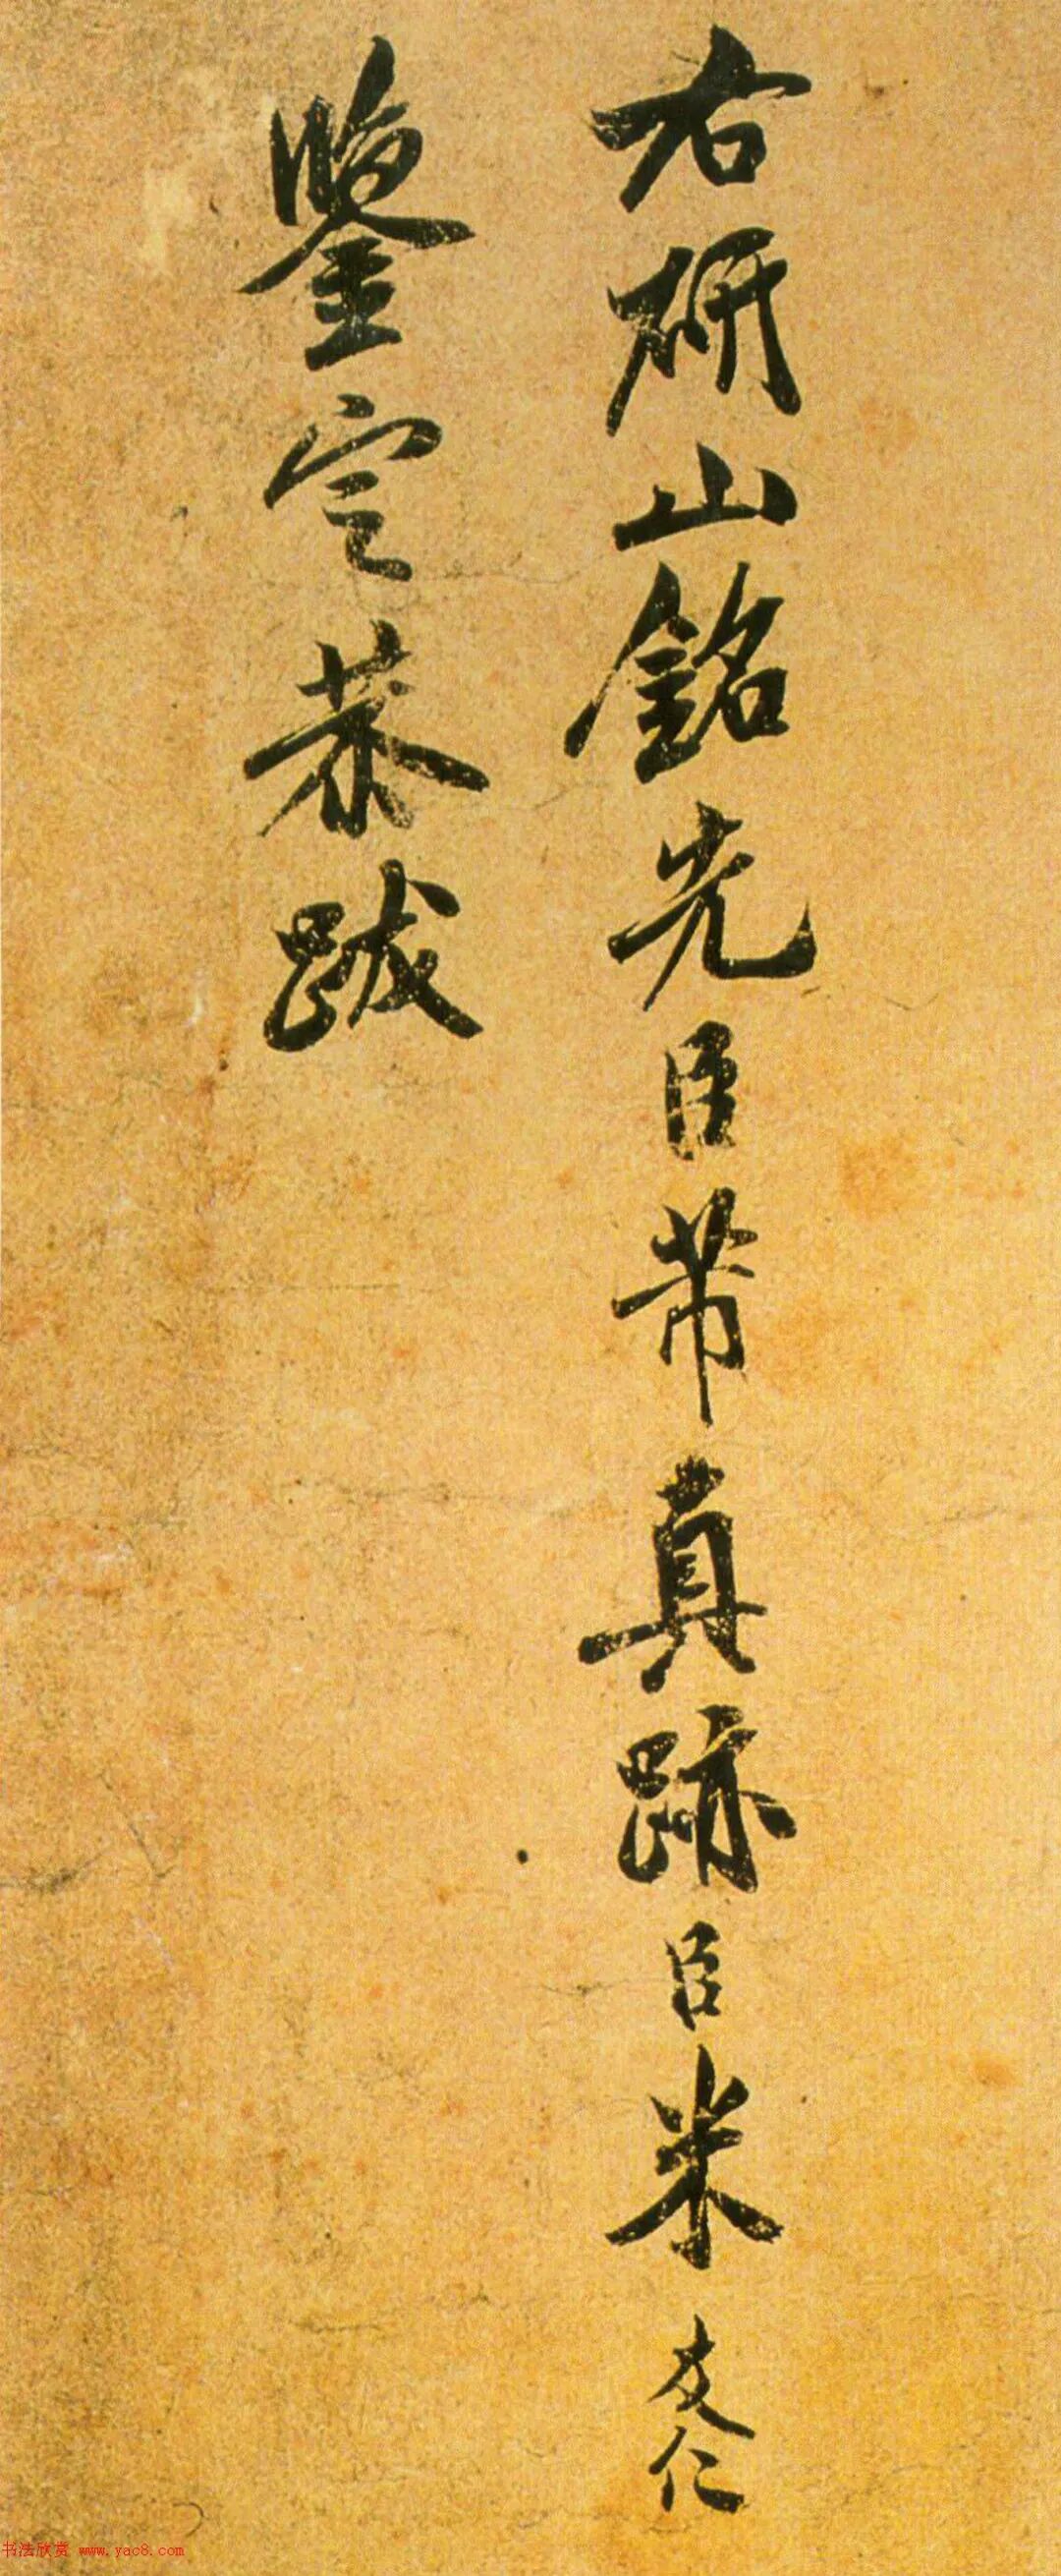 右研山銘先臣芾真跡臣米友仁
鑒定恭跋
书法欣赏 www.yac8.com